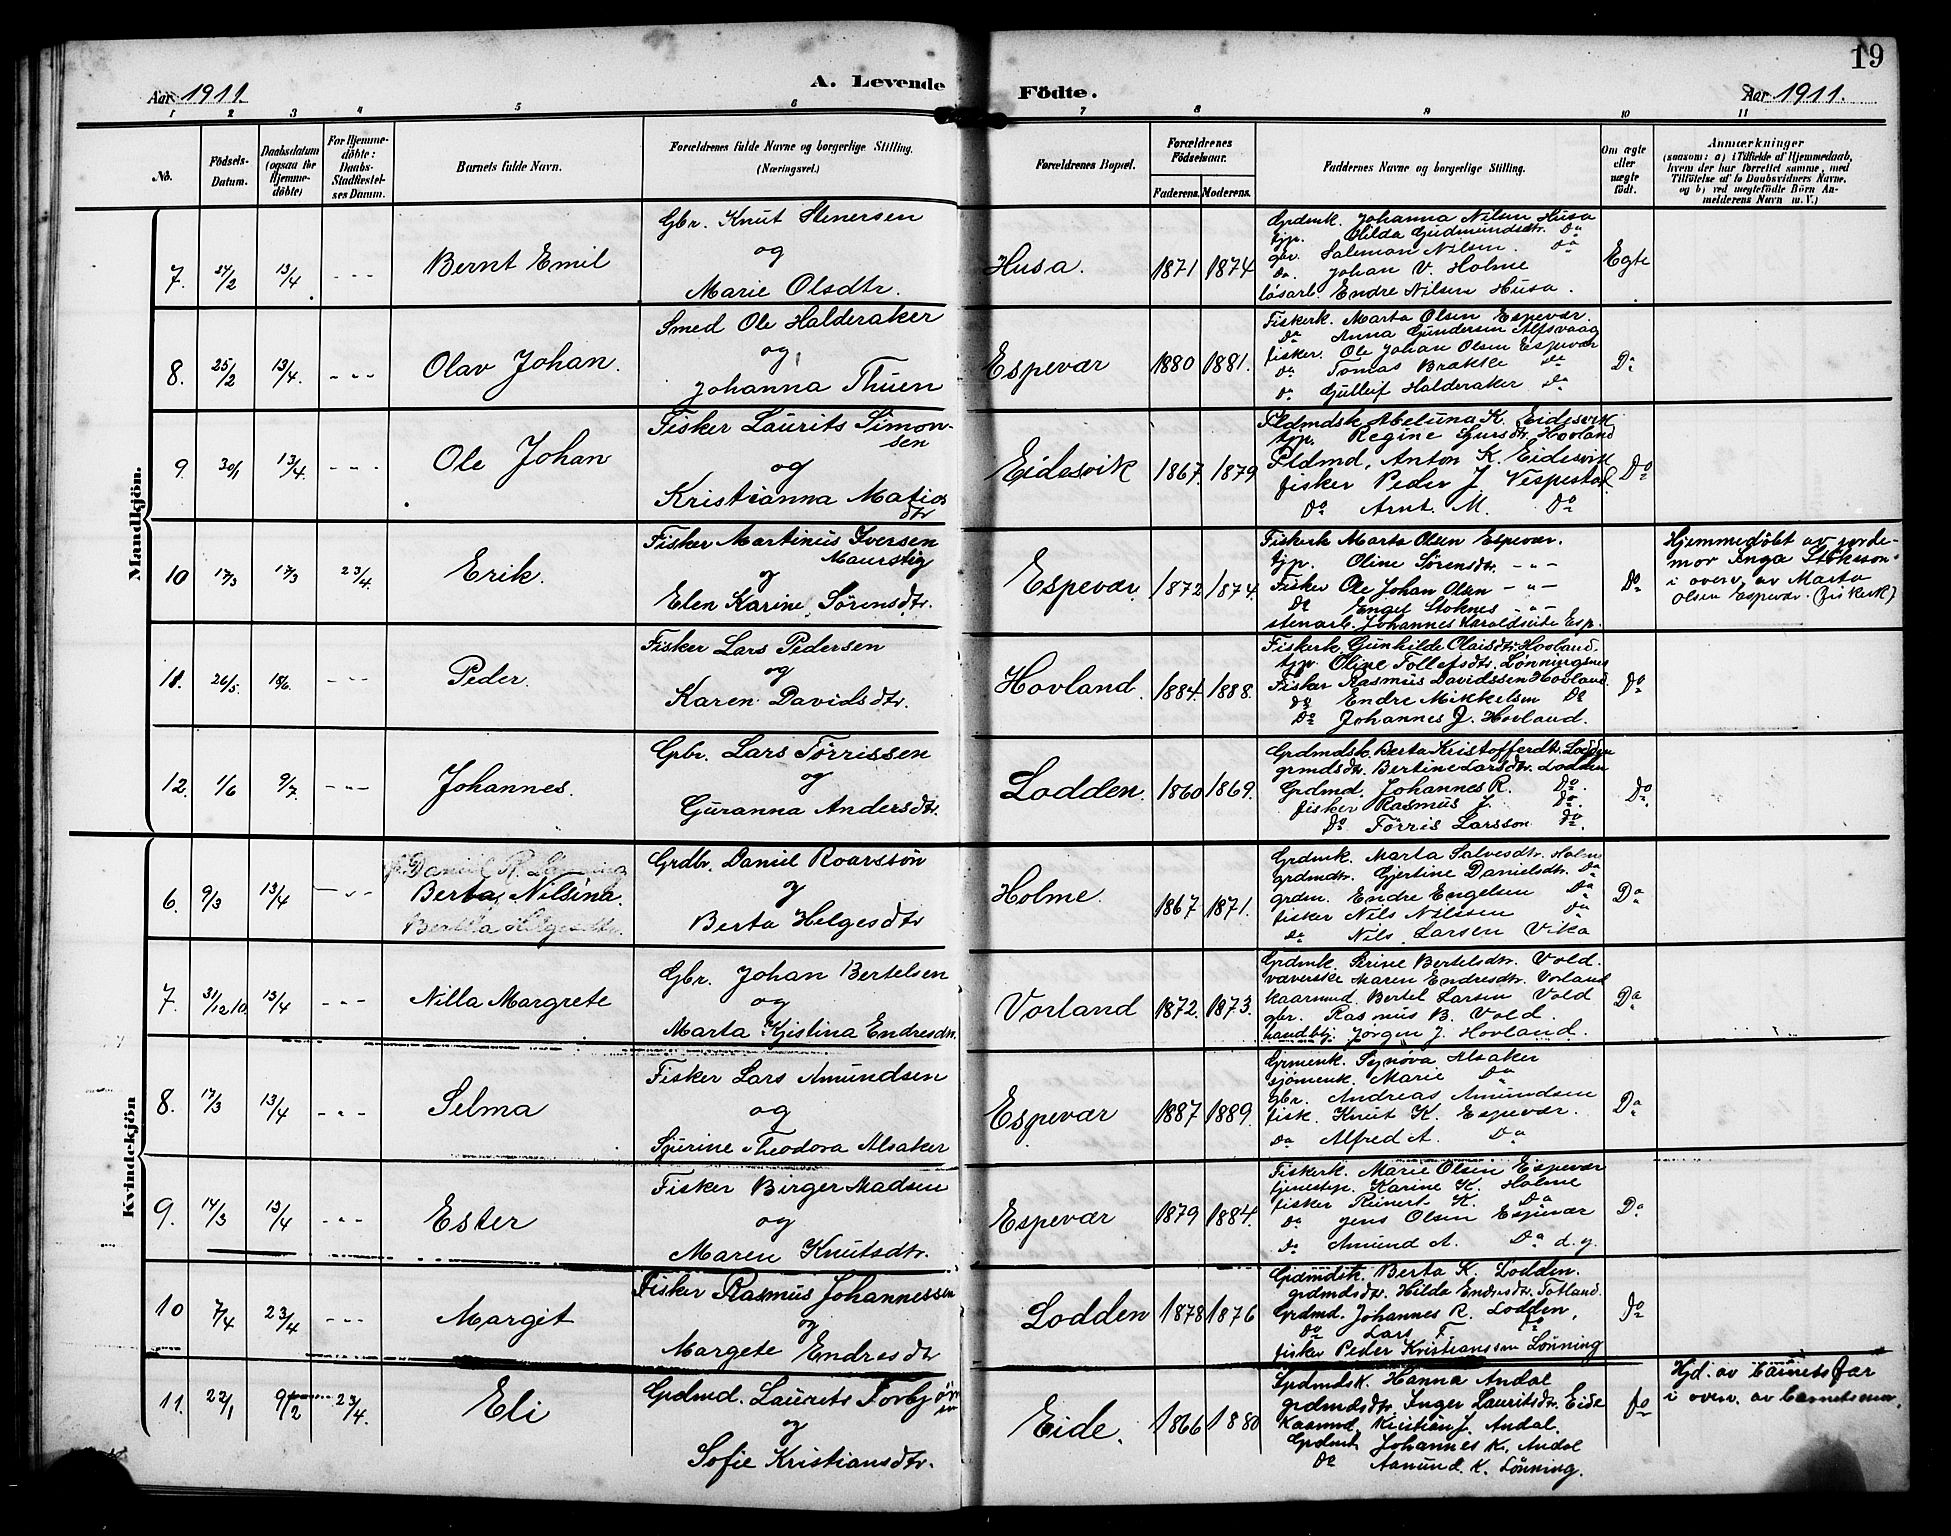 19
Aar 1911.
A. Levende Födte.
Aar 1911.
1 2 3 4 5 6 7 8 9 10 11
No.
Födsels-Datum.
Daabsdatum (ogsaa for Hjemmedöbte)
For Hjemmedöbte: Daabs-Stadfestelses Datum.
Barnets fulde Navn.
Forældrenes fulde Navne og borgerlige Stilling. (Næringsvei.)
Forældrenes Bopæl.
Forældrenes Födselsaar.
Faderens. Moderens.
Faddernes Navne og borgerlige Stilling.
Om ægte eller uægte födt.
Anmærkninger
(saasom: a) i Tilfælde af Hjemmedaab,
hvem der har forrettet samme, med
Tilföielse af to Daabsvidners Navne,
og b) ved uegtefödte Börn Anmelderens Navn m. V.)
Mandkjön.
7. 27/2 13/4 - - - Bernt Emil
Gbr. Knut Stenersen
og
Marie Olsdtr.
Husa. 1871 1874
Grdmk. Johanna Nilsen Husa
tjp. Hilda Gudmundsdtr. Do
gbr. Salemon Nilsen. Do
Do. Johan V. Holme
lösarb. Endre Nilsen Husa.
Egte
8. 25/2 13/4. - - - Olav Johan.
Smed Ole Halderaker
og
Johanna Thuen
Espevær 1880 1881.
Fiskerk. Marta Olsen Espevær.
Do Anna Gundersen Alfsvaag
fisker. Ole Johan Olsen Espevær
Do Tomas Brakke Do
Do Gulleif Halderaker Do
Do
9. 30/1 13/4. - - - Ole Johan
Fisker Laurits Simonsen
og
Kristianna Matiasdtr
Eidesvik 1867. 1879
Pldmdsk Abeluna K. Eidesvik
tjp. Regine Sjursdtr. Hovland
Pldmd. Anton K. Eidesvik
fisker Peder J. Vespestad.
Do Arnt M. Do
Do
10 17/3 17/3 23/4. Erik.
Fisker Martinus Iversen
Maurstig
og
Elen Karine Sørensdtr.
Espevær. 1872 1874.
Fiskerk Marta Olsen Espevær.
tjp. Oline Sørensdtr. - " -
Fisker Ole Johan Olsen - " -
Do Engel Stoknes - " -
stenarb. Johannes Haroldseide Esp.
Do
Hjemmedöbt av jorde-
mor Inga Stokson
i overv. av Marta
Olsen Espevær. (fiskerk)
11. 26/5. 18/6. - - - Peder.
Fisker Lars Pedersen
og
Karen Davidsdtr.
Hovland. 1884. 1888.
Fiskerk. Gunhilde Olaisdtr. Hovland.
tjp. Oline Tollefsdtr. Lønningsnes
Fisker Rasmus Davidssen Hovland.
Do Endre Mikkelsen Do
Do Johannes J. Hovland.
Do
12. 1/6 9/7. - - - Johannes.
Gbr. Lars Tørrissen
og
Guranna Andersdtr.
Lodden. 1860 1869.
Grdmdsk. Berta Kristofferdtr. Lodden
grmdsdtr. Bertine Larsdtr. Lodden
Grdmd. Johannes R. Do.
fisker Rasmus J. Do.
Do Tørris Larsson Do.
Do.
Kvindekjön
6. 9/3 13/4 Berta Nilsina.
Grdbr. Daniel Roarssön
og
Berta Helgesdtr
Holme. 1867 1871.
Grdmk. Marta Salvesdtr. Holme
grdmdtr. Gjertine Danielsdtr. Do
grdm. Endre Engelsen Do
fisker Nils Nilssen Do
Do Nils Larsen Vika
Do
7. 31/12 10. 13/4 - - - Nilla Margrete
Gbr. Johan Bertelsen
og
Marta Kjistina Endresdtr.
Vorland 1872. 1873.
Grdmk. Serine Bertelsdtr. Vold.
væverske Maren Endresdtr. Vorland
kaarmand Bertel Larsen Vold
gbr. Rasmus B. Vold.
handlbtj. Jørgen J. Hovland.
Do
8. 17/3 13/4 - - - Selma
Fisker Lars Amundsen
og
Sjurine Theodora Alsaker
Espevær 1887 1889.
Grmenk. Synöva Alsaker
sjömenk. Marie Do
gbr. Andreas Amundsen
fisk. Knut K. Espevær.
Do Alfred A. Do
Do
9. 14/3 13/4 - - - Ester
Fisker Birger Madsen
og
Maren Knutsdtr.
Espevær 1879 1884.
Fiskerk. Marie Olsen Espevær
tjenestp. Karine K. Holme
fisker Reinert K. Do
Do Jens Olsen Espevær
Do Amund A. Do d.y.
Do
10 7/4 23/4 - - - Margit
Fisker Rasmus Johannessen
og
Margete Endresdtr
Lodden 1878 1876
Grdmdsk. Berta K. Lodden.
grdmdsdtr. Hilda Endresdtr. Totland.
Grdmd. Johannes R. Lodden,
Do Lars T. Do
fisker Peder Kristianssen Lönning
Do
11. 22/1 9/2 23/4. Eli
Grdmd. Laurits Torbjörnsen
og
Sofie Kristiansdtr.
Eide. 1866 1880
Grdmdsk. Hanna Andal
grdmdsdtr. Inger Lauritsdtr. Eide
Kaarmd. Kristian J. Andal.
Grdmd. Johannes K. Andal
Do Aamund. K. Lönning.
Do
Hjd. av barnets far
i overv. av barnets mor.